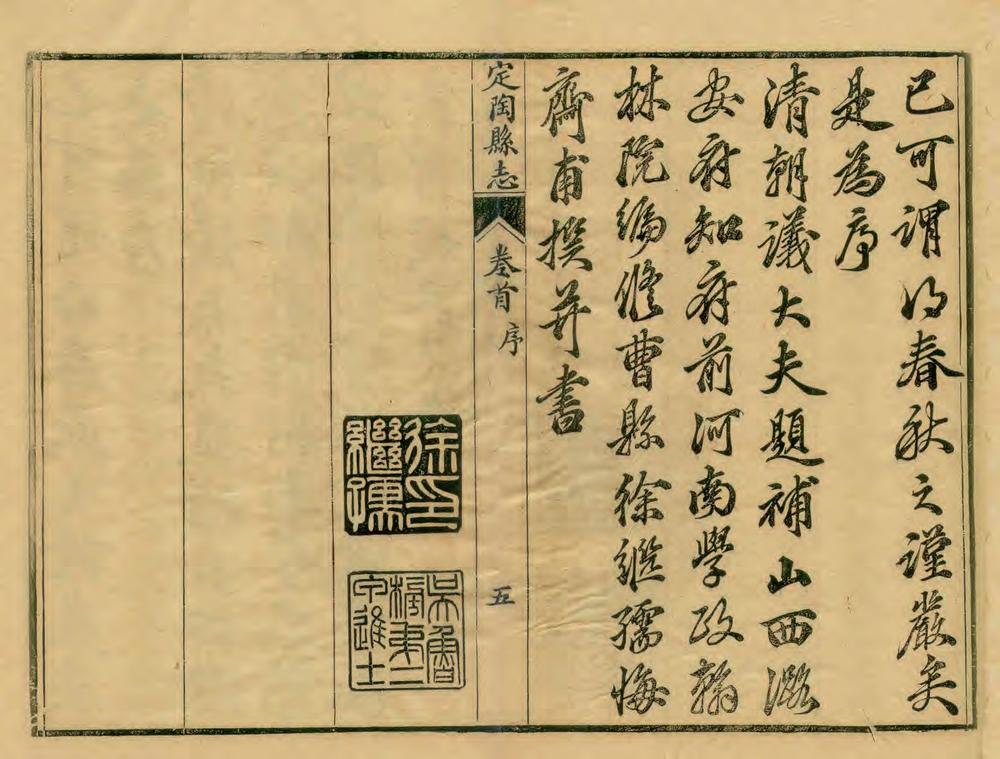 已可謂得春秋之謹嚴矣
是為序
清朝議大夫題補山西潞
安府知府前河南學政翰
林院編修曹縣徐繼孺悔
齋甫撰并書
定陶縣志 卷首 序 五
徐印
繼孺
吳魯
榜弟二
甲進士